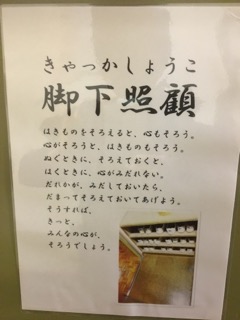 きゃっかしょうこ
脚下照顧
はきものをそろえると、心もそろう。
心がそろうと、はきものもそろう。
ぬぐときに、そろえておくと、
はくときに、心がみだれない。
だれかが、みだしておいたら、
だまってそろえておいてあげよう。
そうすれば、
きっと、
みんなの心が、
そろうでしょう。